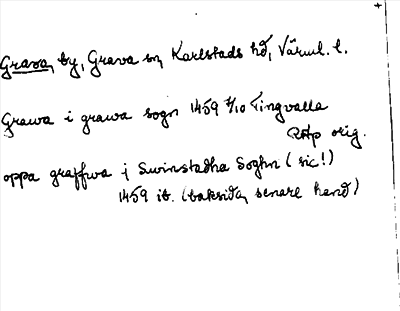 Grava, by, Grava sn, Karlstads hd, Värml. l.
Grawa i grawa sogn 1459 8/10 Tingvalla
RAp orig.
oppa graffwa j Swinstadha Soghn (sic!)
1459 ib. (baksida, senare hand)